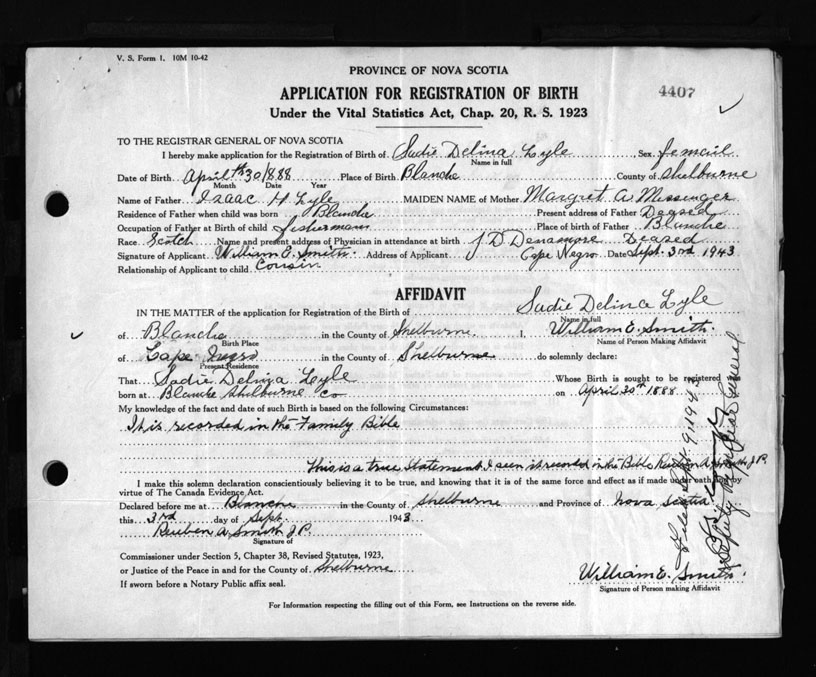 V. S. Form 1. 10M 10-42
PROVINCE OF NOVA SCOTIA
APPLICATION FOR REGISTRATION OF BIRTH
4407
Under the Vital Statistics Act, Chap. 20, R. S. 1923
TO THE REGISTRAR GENERAL OF NOVA SCOTIA
I hereby make application for the Registration of Birth of Sadie Delina Lyle Sex femail
Name in full
Date of Birth April 30th 1888 Place of Birth Blanche County of Shelburne
Month Date Year
Name of Father Izaac H Lyle MAIDEN NAME of Mother Margret A. Messinger
Residence of Father when child was born Blanche Present address of Father Deased
Occupation of Father at Birth of child fisherman Place of birth of Father Blanche
Race Scotch Name and present address of Physician in attendance at birth J D Densmore Deased
Signature of Applicant William E. Smith Address of Applicant Cape Negro Date Sept. 3rd 1943
Relationship of Applicant to child Cousin
AFFIDAVIT
IN THE MATTER of the application for Registration of the Birth of Sadie Delina Lyle
Name in full
of Blanche in the County of Shelburne I, William E. Smith
Birth Place Name of Person Making Affidavit
of Cape Negro in the County of Shelburne do solemnly declare:
Present Residence
That Sadie Delina Lyle Whose Birth is sought to be registered
born at Blanche Shelburne Co on April 30th 1888
My knowledge of the fact and date of such Birth is based on the following Circumstances:
It is recorded in the Family Bible
This is a true Statement I seen it record in the Bible Reuben A. Smith J.P.
I make this solemn declaration conscientiously believing it to be true, and knowing that it is of the same force and effect as if made under oath and by
virtue of The Canada Evidence Act.
Declared before me at Blanche in the County of Shelburne and Province of Nova Scotia
this 3rd day of Sept. 1943
Reuben A. Smith J.P.
Signature of
Commissioner under Section 5, Chapter 38, Revised Statutes, 1923,
or Justice of the Peace in and for the County of Shelburne
If sworn before a Notary Public affix seal.
William E. Smith
Signature of Person making Affidavit
For Information respecting the filling out of this Form, see Instructions on the reverse side.
Deputy Registrar General